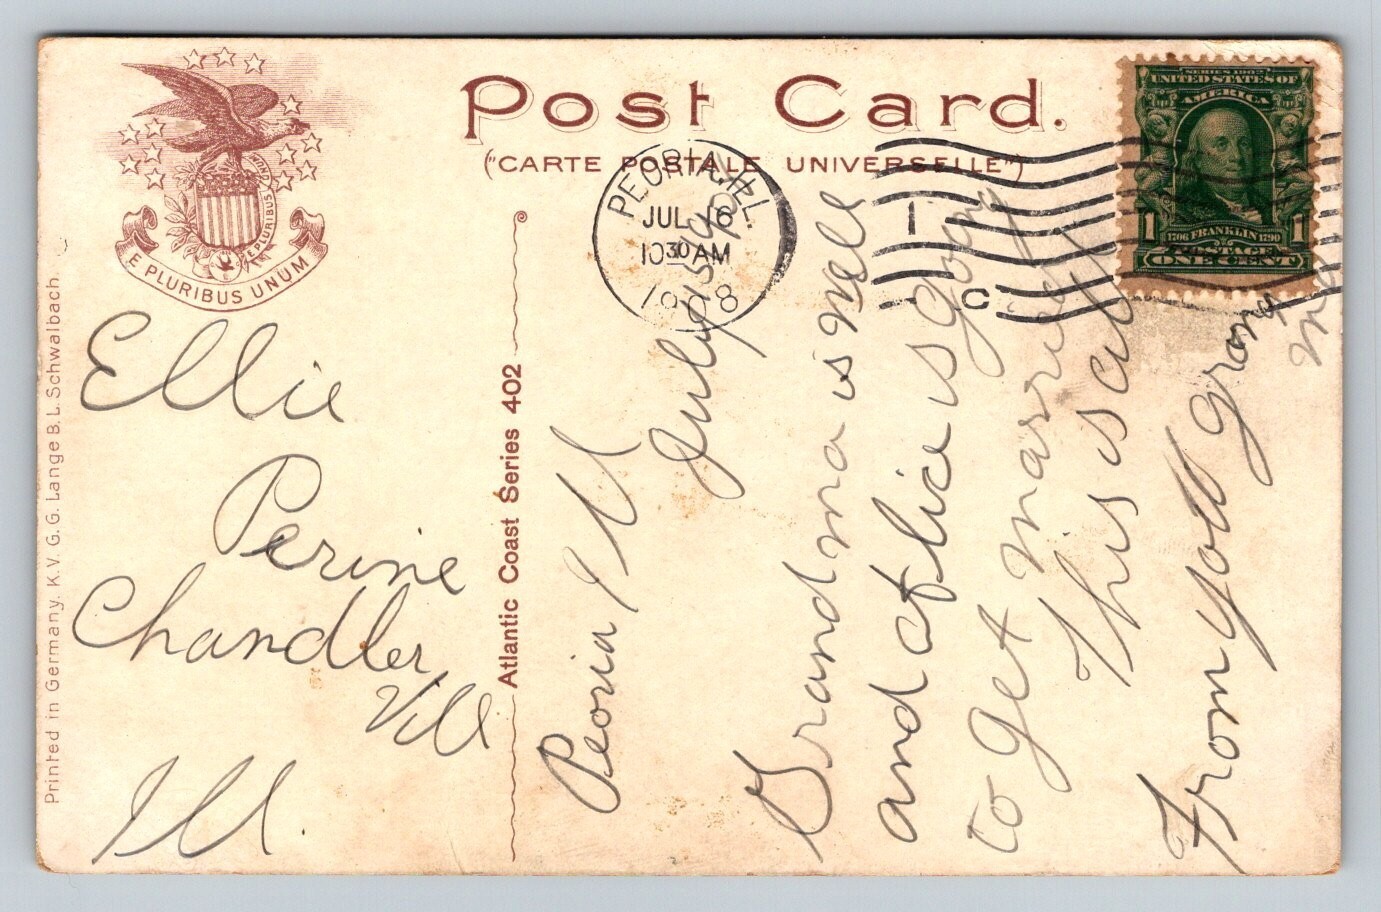 Post Card.
("CARTE POSTALE UNIVERSELLE")
E PLURIBUS UNUM
E PLURIBUS UNUM
SERIES 1902
UNITED STATES OF
AMERICA
1706 FRANKLIN 1790
1 1
POSTAGE
ONE CENT
PEORIA, ILL.
JUL 16
10 30 AM
1908
C
Printed in Germany. K. V. G. G. Lange B. L. Schwalbach
Atlantic Coast Series 402
Ellie
Perine
Chandler,
Vill
Ill.
Peoria Ill
July 15
Grandma is well
and Alice is going
to get married
This is all
From yold grany